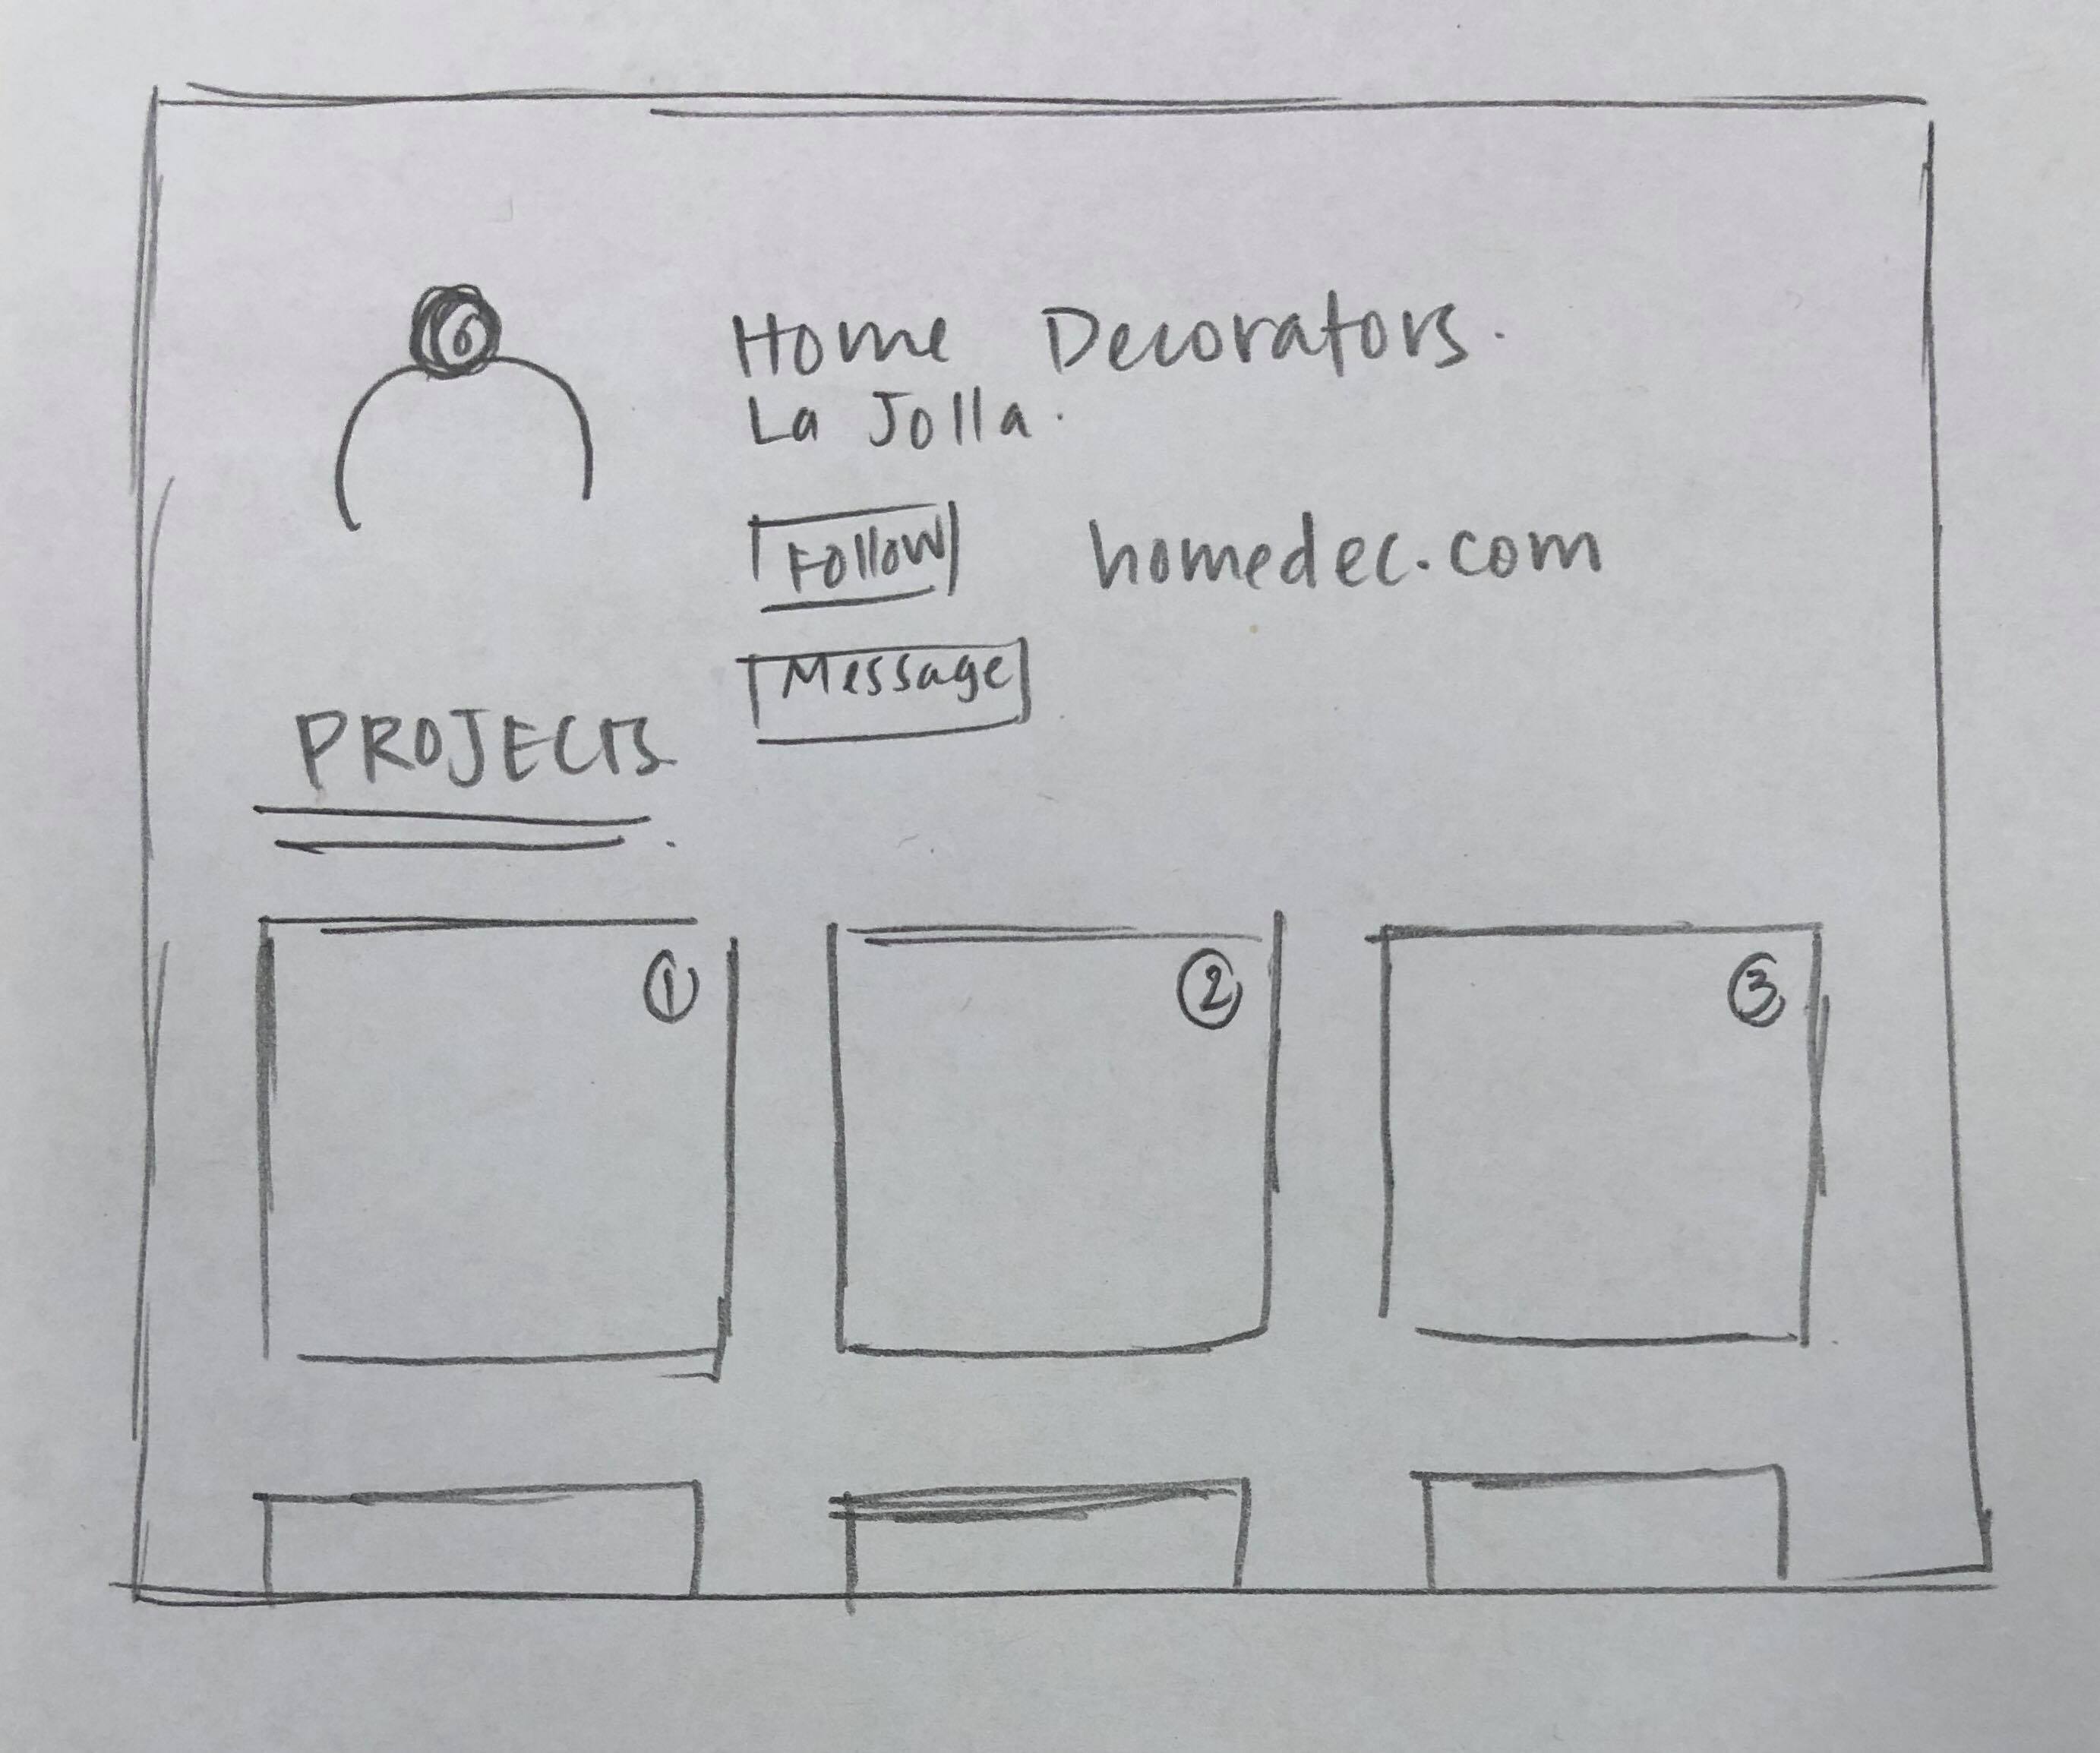 Home Decorators.
La Jolla.
Follow
homedec.com
Message
PROJECTS
1
2
3